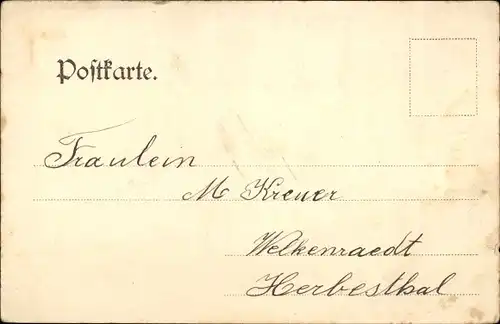 Postkarte.
Fraulein
M Kreuer
Welkenraedt
Herbesthal